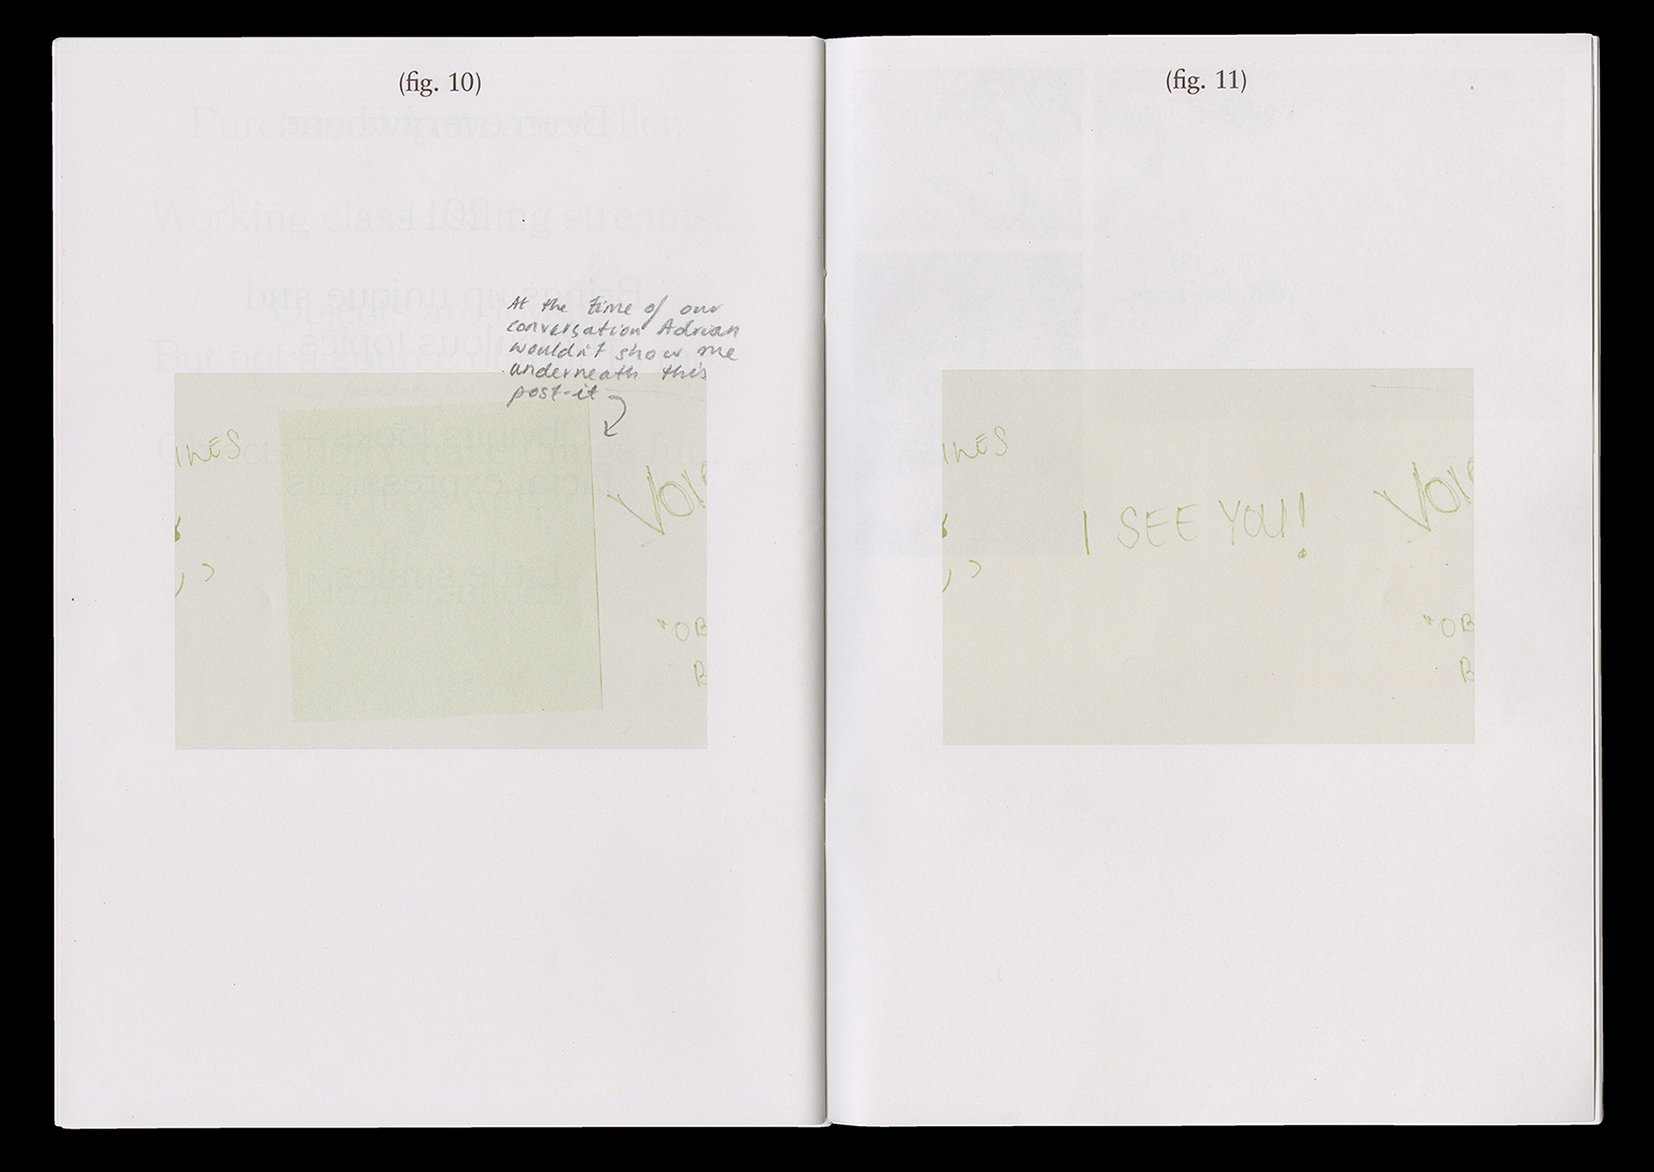 (fig. 10)
At the time of our
conversation Adrian
wouldn't show me
underneath this
post-it
INES
VOI
"OB
B
(fig. 11)
INES
I SEE YOU!
VOI
"OB
B